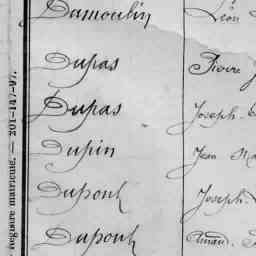 Damoulin Léon
Dupas Pierre
Dupas Joseph
Dupin Jean
Dupont Joseph
Dupont Amand
Registre matricule. — 201-147-97.